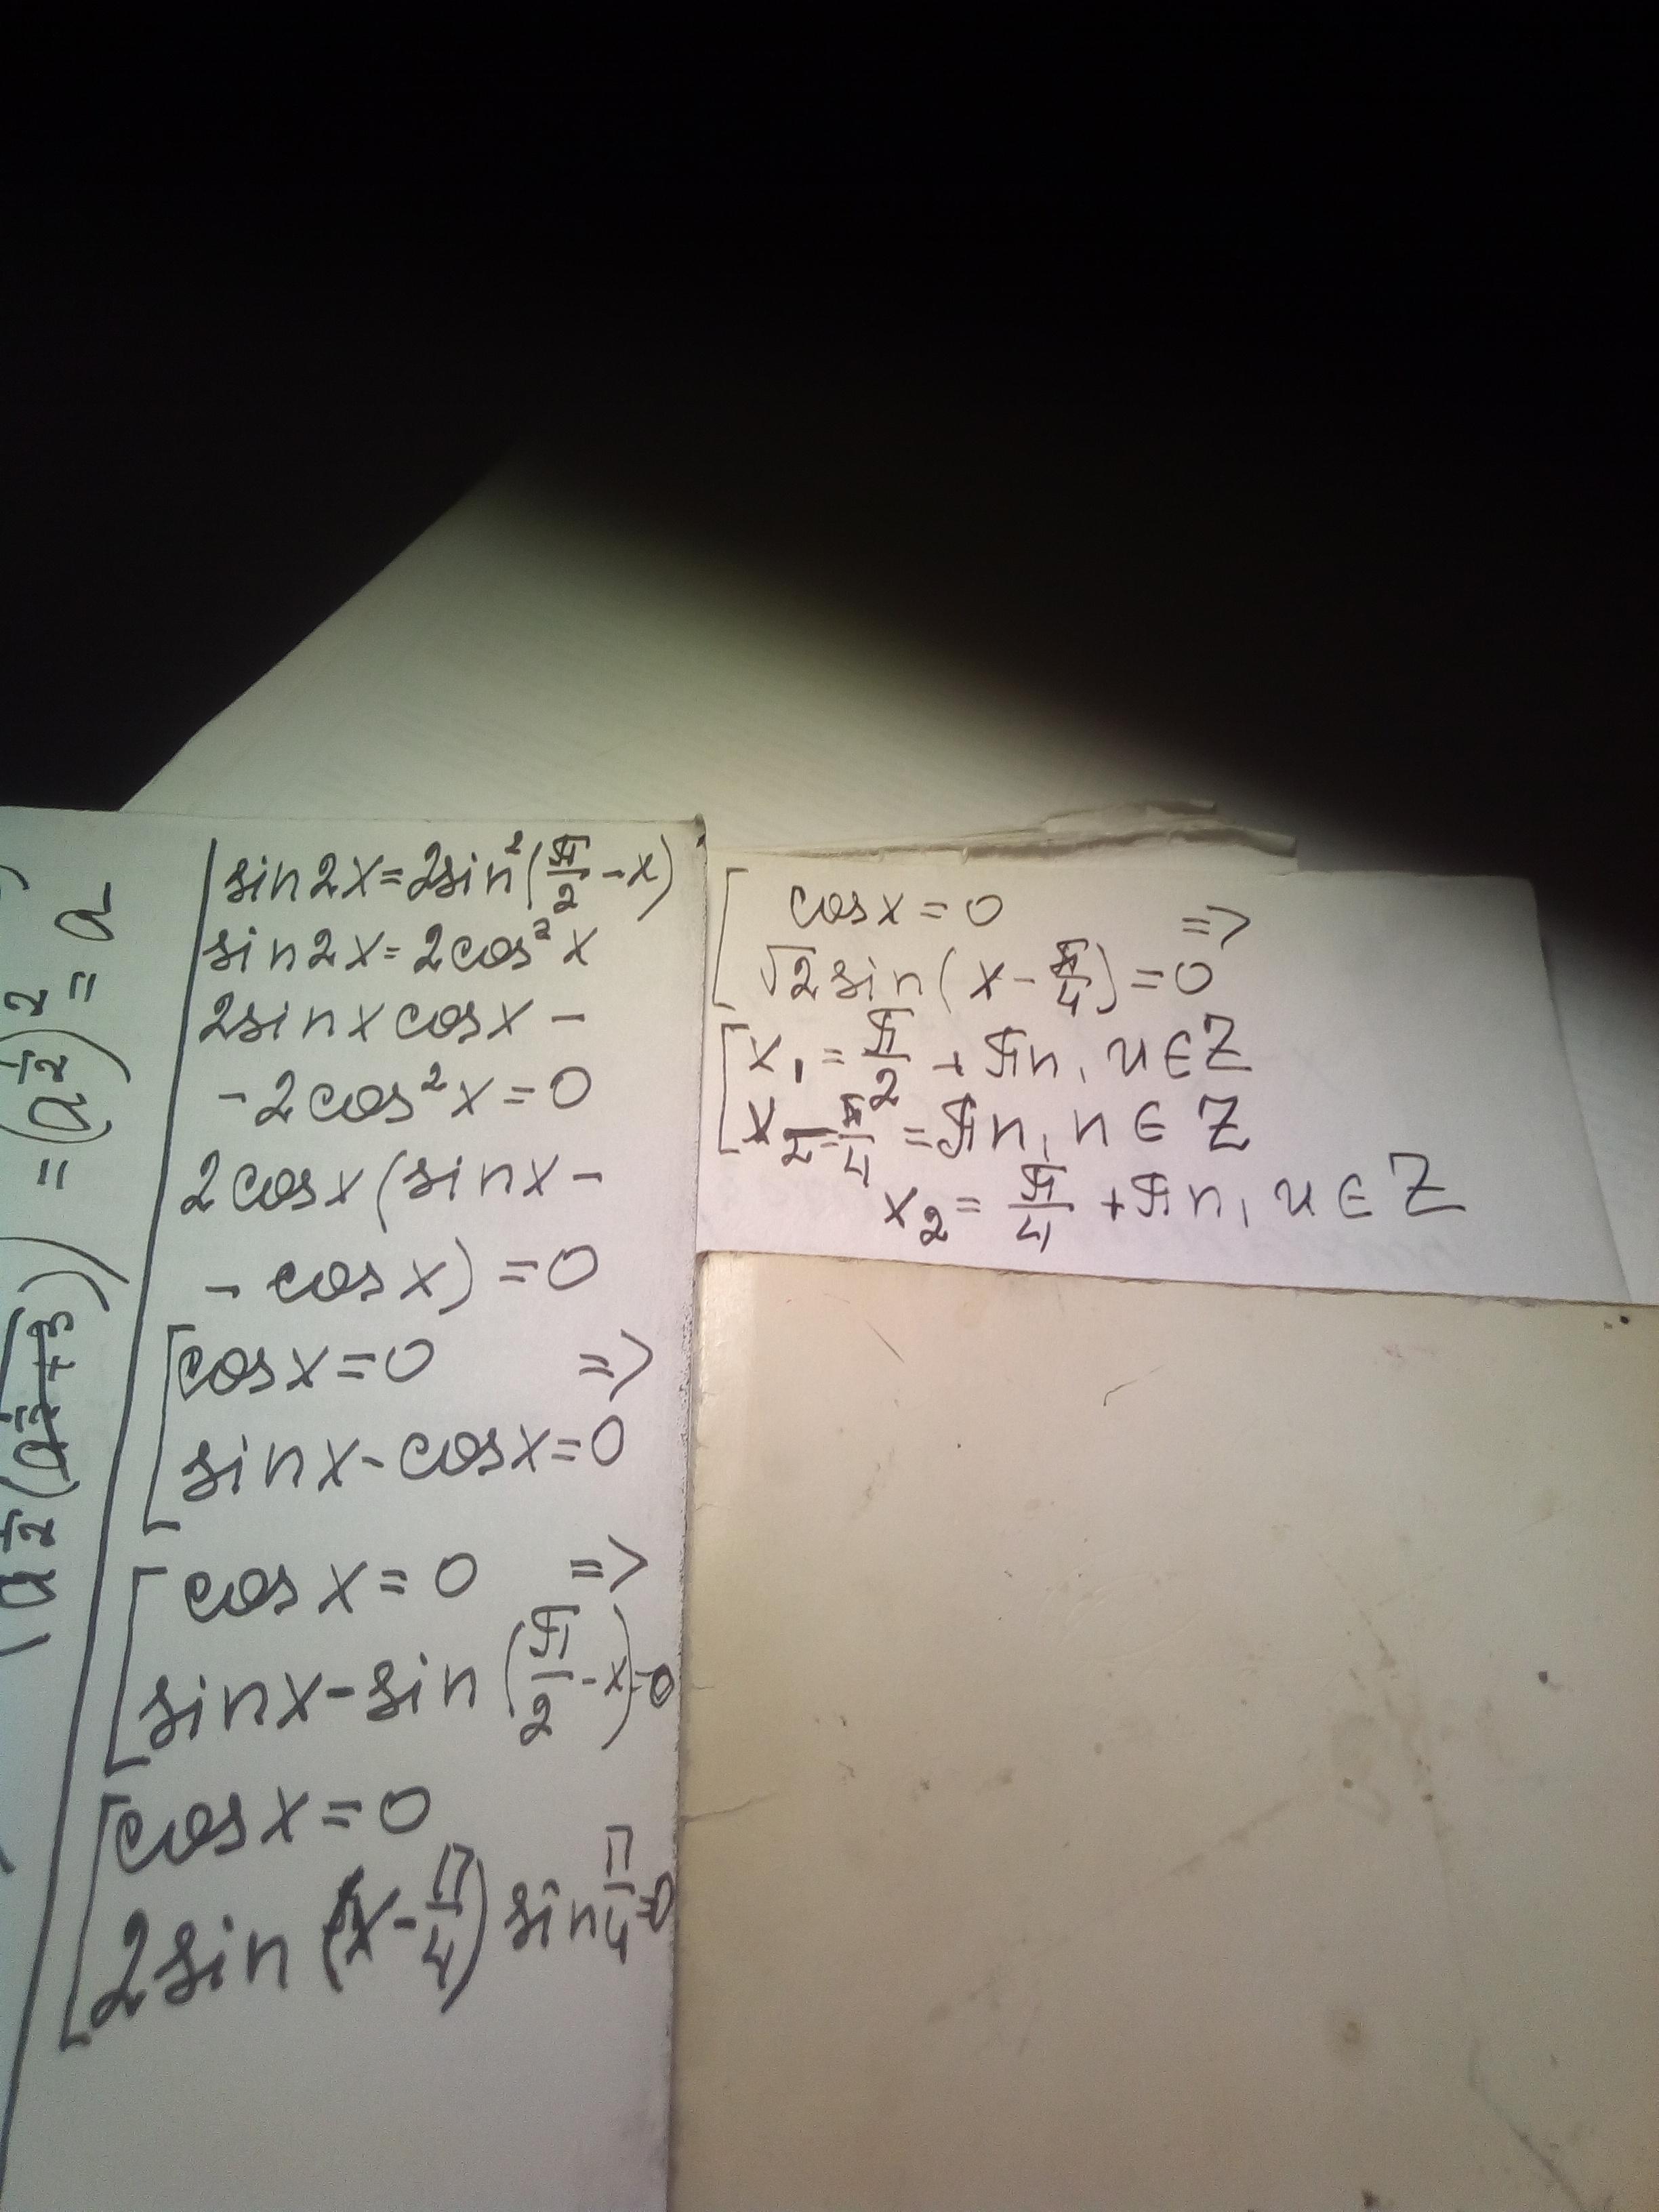 sin2x=2sin²(π/2-x)
sin2x=2cos²x
2sinxcosx-
-2cos²x=0
2cosx(sinx-
-cosx)=0
[cosx=0 =>
sinx-cosx=0
[cosx=0 =>
sinx-sin(π/2-x)=0
[cosx=0
2sin(x-π/4)sinπ/4=0
[cosx=0 =>
√2sin(x-π/4)=0
[x₁=π/2+πn, n∈Z
x₂-π/4=πn, n∈Z
x₂=π/4+πn, n∈Z
=(a^½)²=a